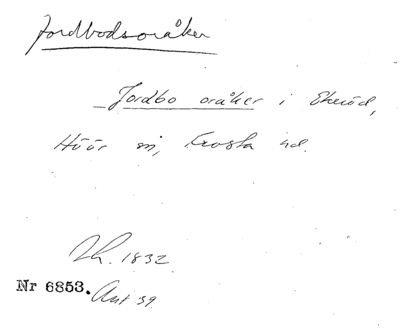 Jordbodsoråker
Jordbo oråker i Ekeröd,
Höör sn, Frosta hd.
Lh. 1832
Nr 6853. Ant 39